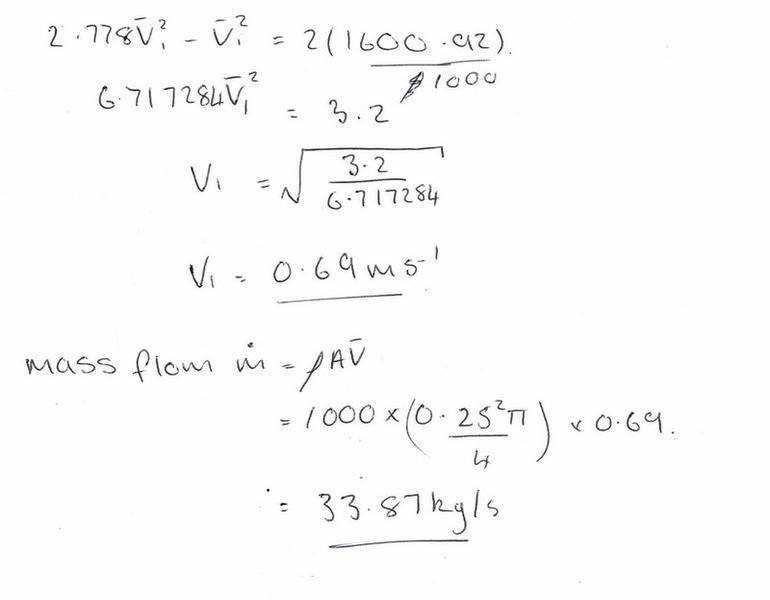 2.778V̄₁² - V̄₁² = 2(1600.92).
1000
6.717284V̄₁² = 3.2
V₁ = √(3.2 / 6.717284)
V₁ = 0.69 ms⁻¹
mass flow ṁ = ρAV̄
= 1000 × (0.25²π / 4) × 0.69.
= 33.87 kg/s